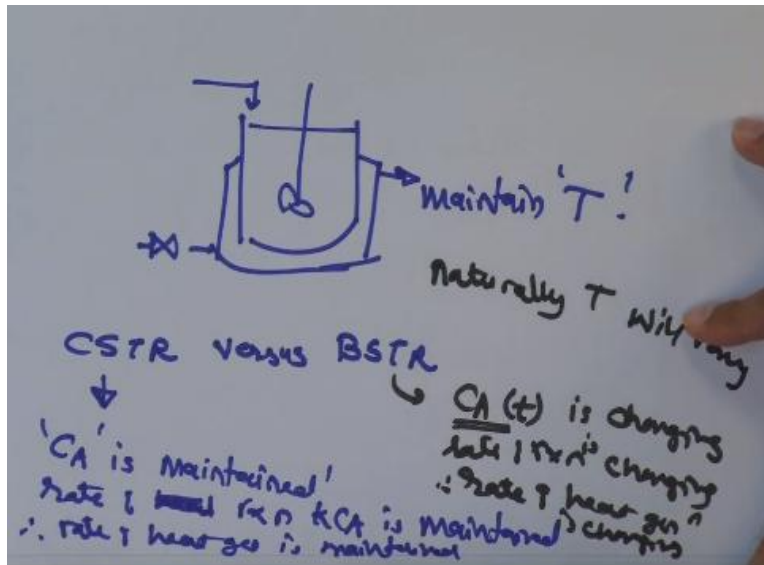 Maintain 'T'!
Naturally T will vary
CSTR versus BSTR
'CA' is maintained'
rate of rxn kCA is maintained
∴ rate of heat gen is maintained
CA(t) is changing
rate of rxn is changing
∴ rate of heat genⁿ is changing